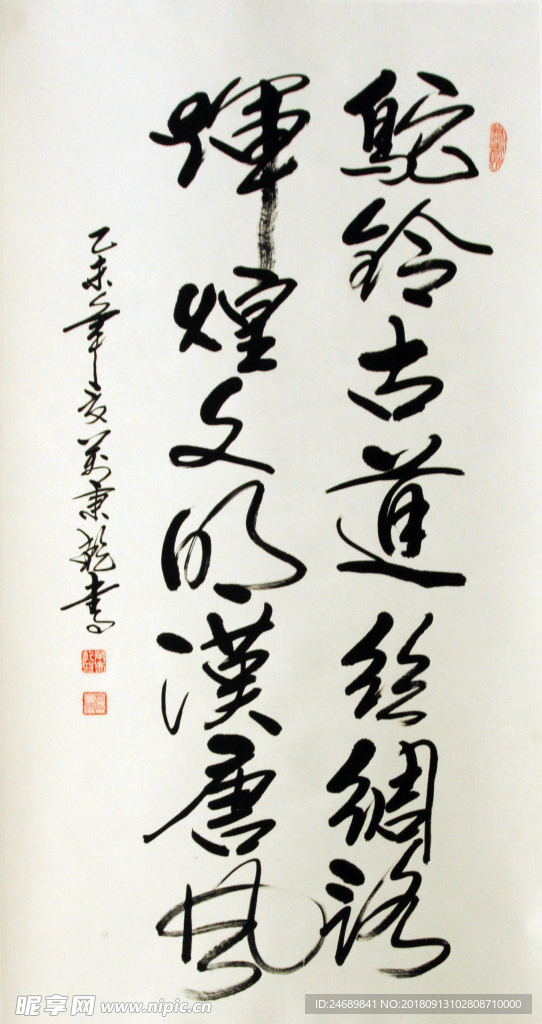 駝鈴古道絲綢路
輝煌文明漢唐風
乙未年夏萬秉乾書
昵享网 www.nipic.cn
ID:24689841 NO:20180913102808710000